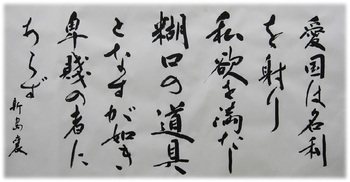 愛国は名利
を射り
私欲を満たし
糊口の道具
となすが如き
卑賤の者に
あらず
新島襄